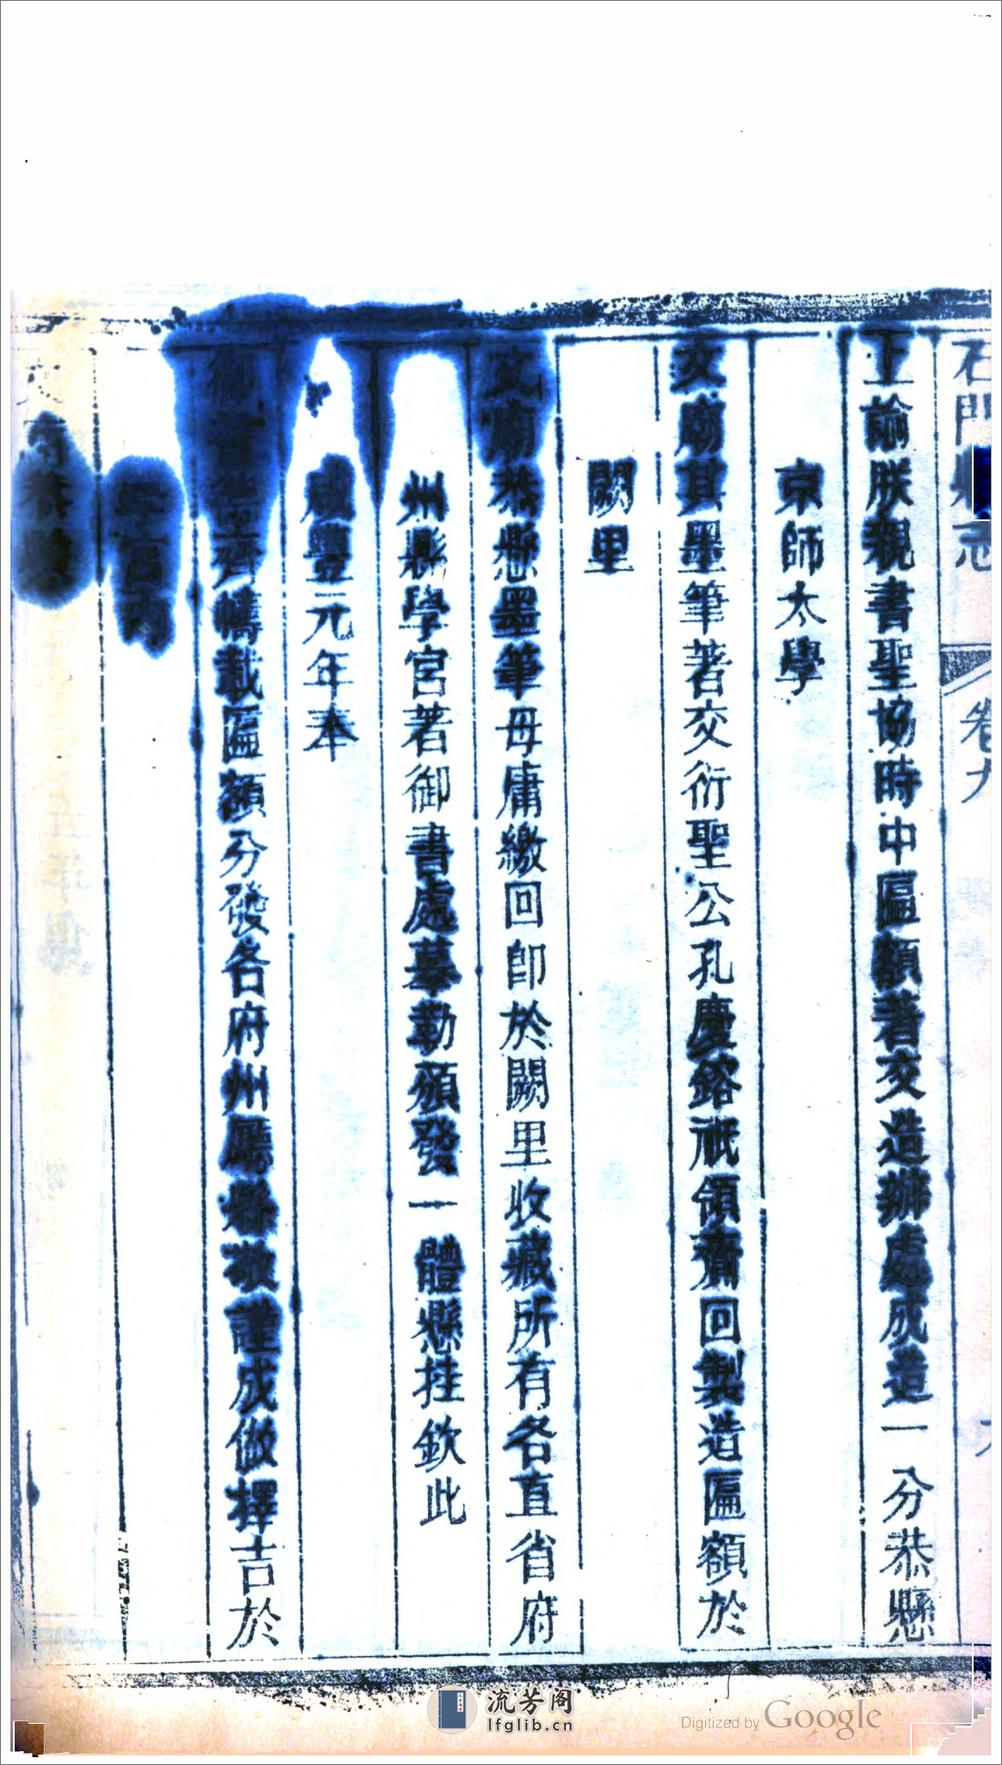 石門縣志 卷九
上諭朕親書聖協時中匾額著交造辦處成造一分恭懸
京師太學
文廟其墨筆著交衍聖公孔慶鎔祇領齎回製造匾額於
闕里
文廟恭懸墨筆毋庸繳回卽於闕里收藏所有各直省府
州縣學宮著御書處摹勒頒發一體懸挂欽此
咸豐元年奉
御書 齊幬載匾額分發各府州廳縣敬謹成做擇吉於
學宮
恭懸
流芳阁
lfglib.cn
Digitized by Google